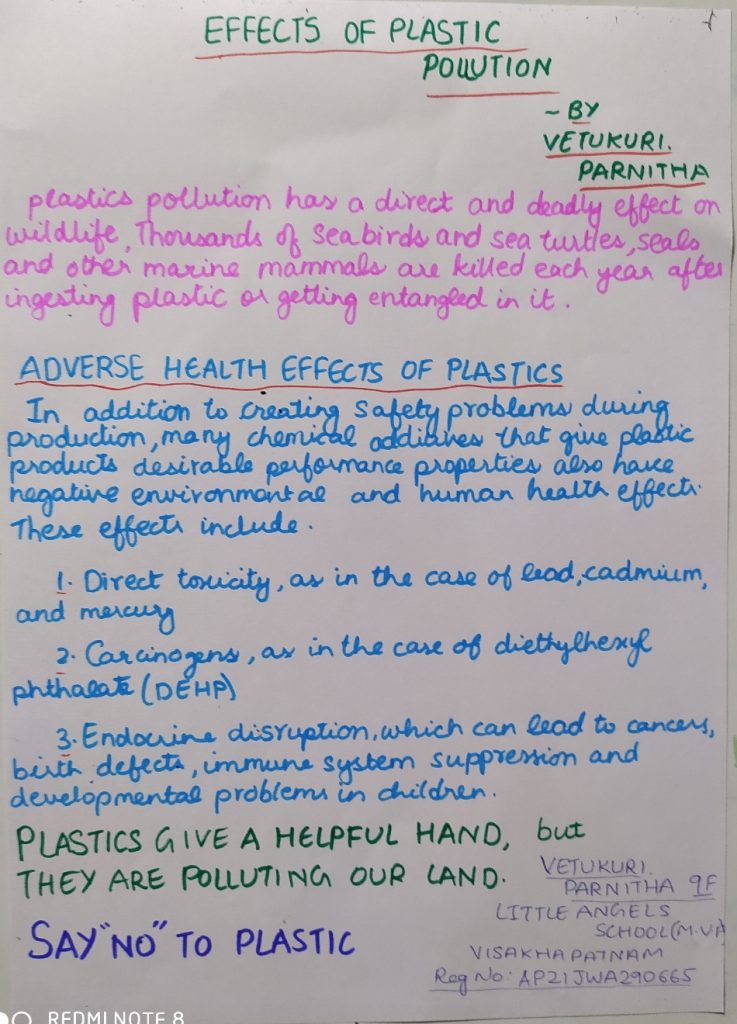 EFFECTS OF PLASTIC
POLLUTION
- BY
VETUKURI.
PARNITHA
plastics pollution has a direct and deadly effect on
wildlife, Thousands of seabirds and sea turtles, seals
and other marine mammals are killed each year after
ingesting plastic or getting entangled in it.
ADVERSE HEALTH EFFECTS OF PLASTICS
In addition to creating safety problems during
production, many chemical additives that give plastic
products desirable performance properties also have
negative environmental and human health effects.
These effects include.
1. Direct toxicity, as in the case of lead, cadmium,
and mercury
2. Carcinogens, as in the case of diethylhexyl
phthalate (DEHP)
3. Endocrine disruption, which can lead to cancers,
birth defects, immune system suppression and
developmental problems in children.
PLASTICS GIVE A HELPFUL HAND, but
THEY ARE POLLUTING OUR LAND.
SAY "NO" TO PLASTIC
VETUKURI.
PARNITHA 9F
LITTLE ANGELS
SCHOOL (M.VP)
VISAKHAPATNAM
Reg No: AP21JWA290665
REDMI NOTE 8